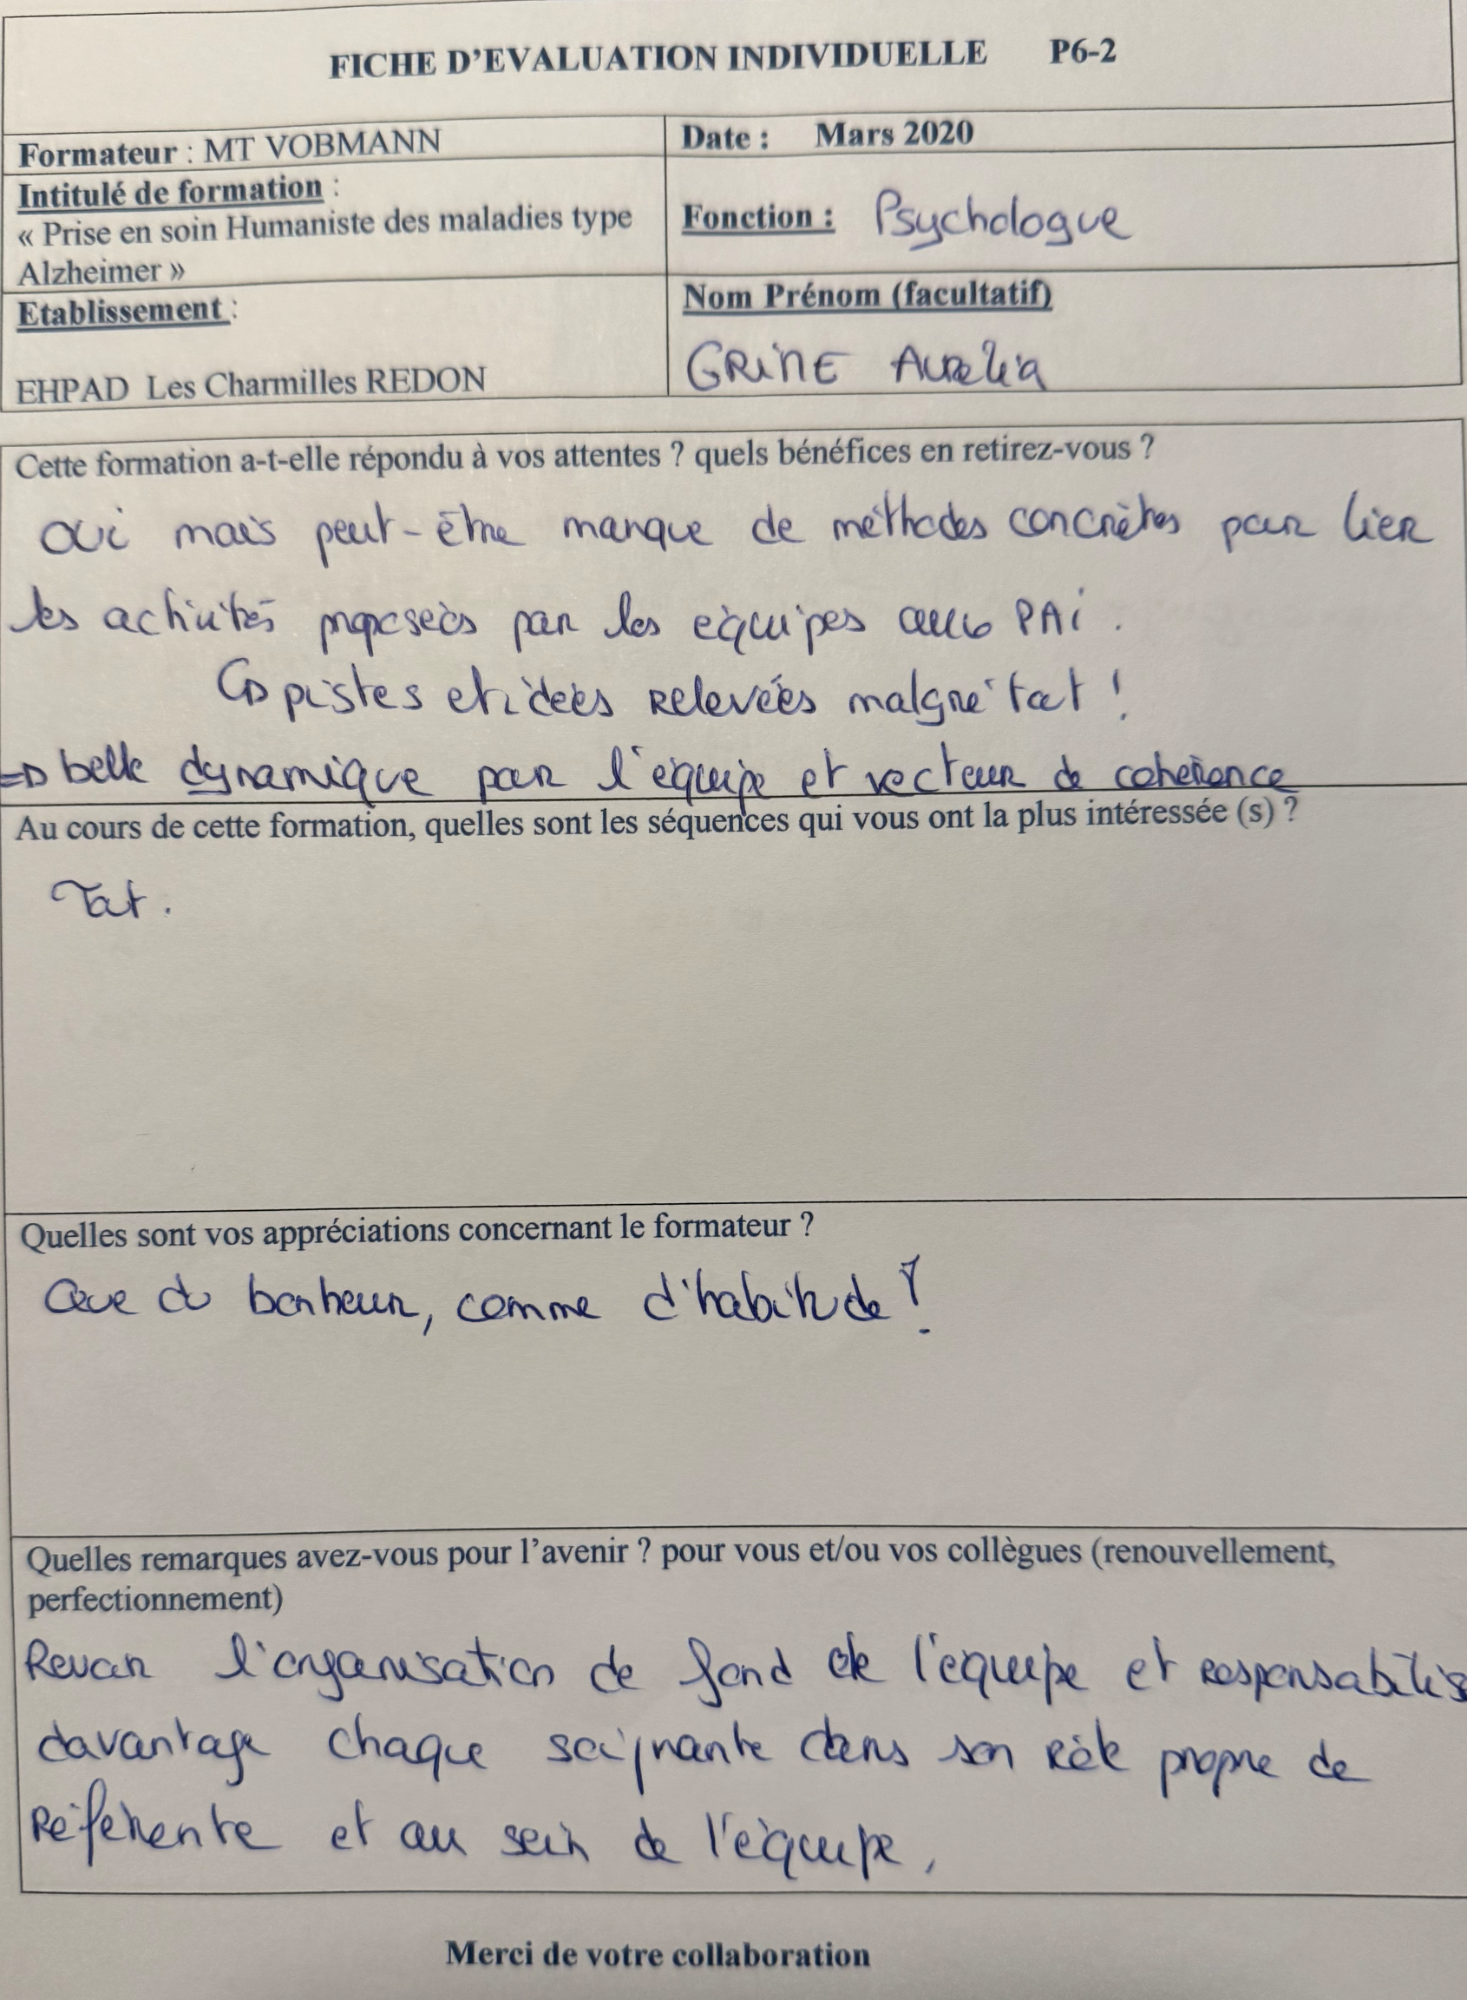 FICHE D'EVALUATION INDIVIDUELLE P6-2
Formateur : MT VOBMANN
Date : Mars 2020
Intitulé de formation :
« Prise en soin Humaniste des maladies type
Alzheimer »
Fonction : Psychologue
Etablissement :
EHPAD Les Charmilles REDON
Nom Prénom (facultatif)
GRINE Aurelia
Cette formation a-t-elle répondu à vos attentes ? quels bénéfices en retirez-vous ?
Oui mais peut-être manque de méthodes concrètes pour lier
les activités proposées par les équipes au PAI.
↳ pistes et idées relevées malgré tout !
=> belle dynamique pour l'équipe et vecteur de cohérence
Au cours de cette formation, quelles sont les séquences qui vous ont la plus intéressée (s) ?
Tout.
Quelles sont vos appréciations concernant le formateur ?
Que du bonheur, comme d'habitude !
Quelles remarques avez-vous pour l'avenir ? pour vous et/ou vos collègues (renouvellement,
perfectionnement)
Revoir l'organisation de fond de l'équipe et responsabiliser
davantage chaque soignante dans son rôle propre de
référente et au sein de l'équipe,
Merci de votre collaboration